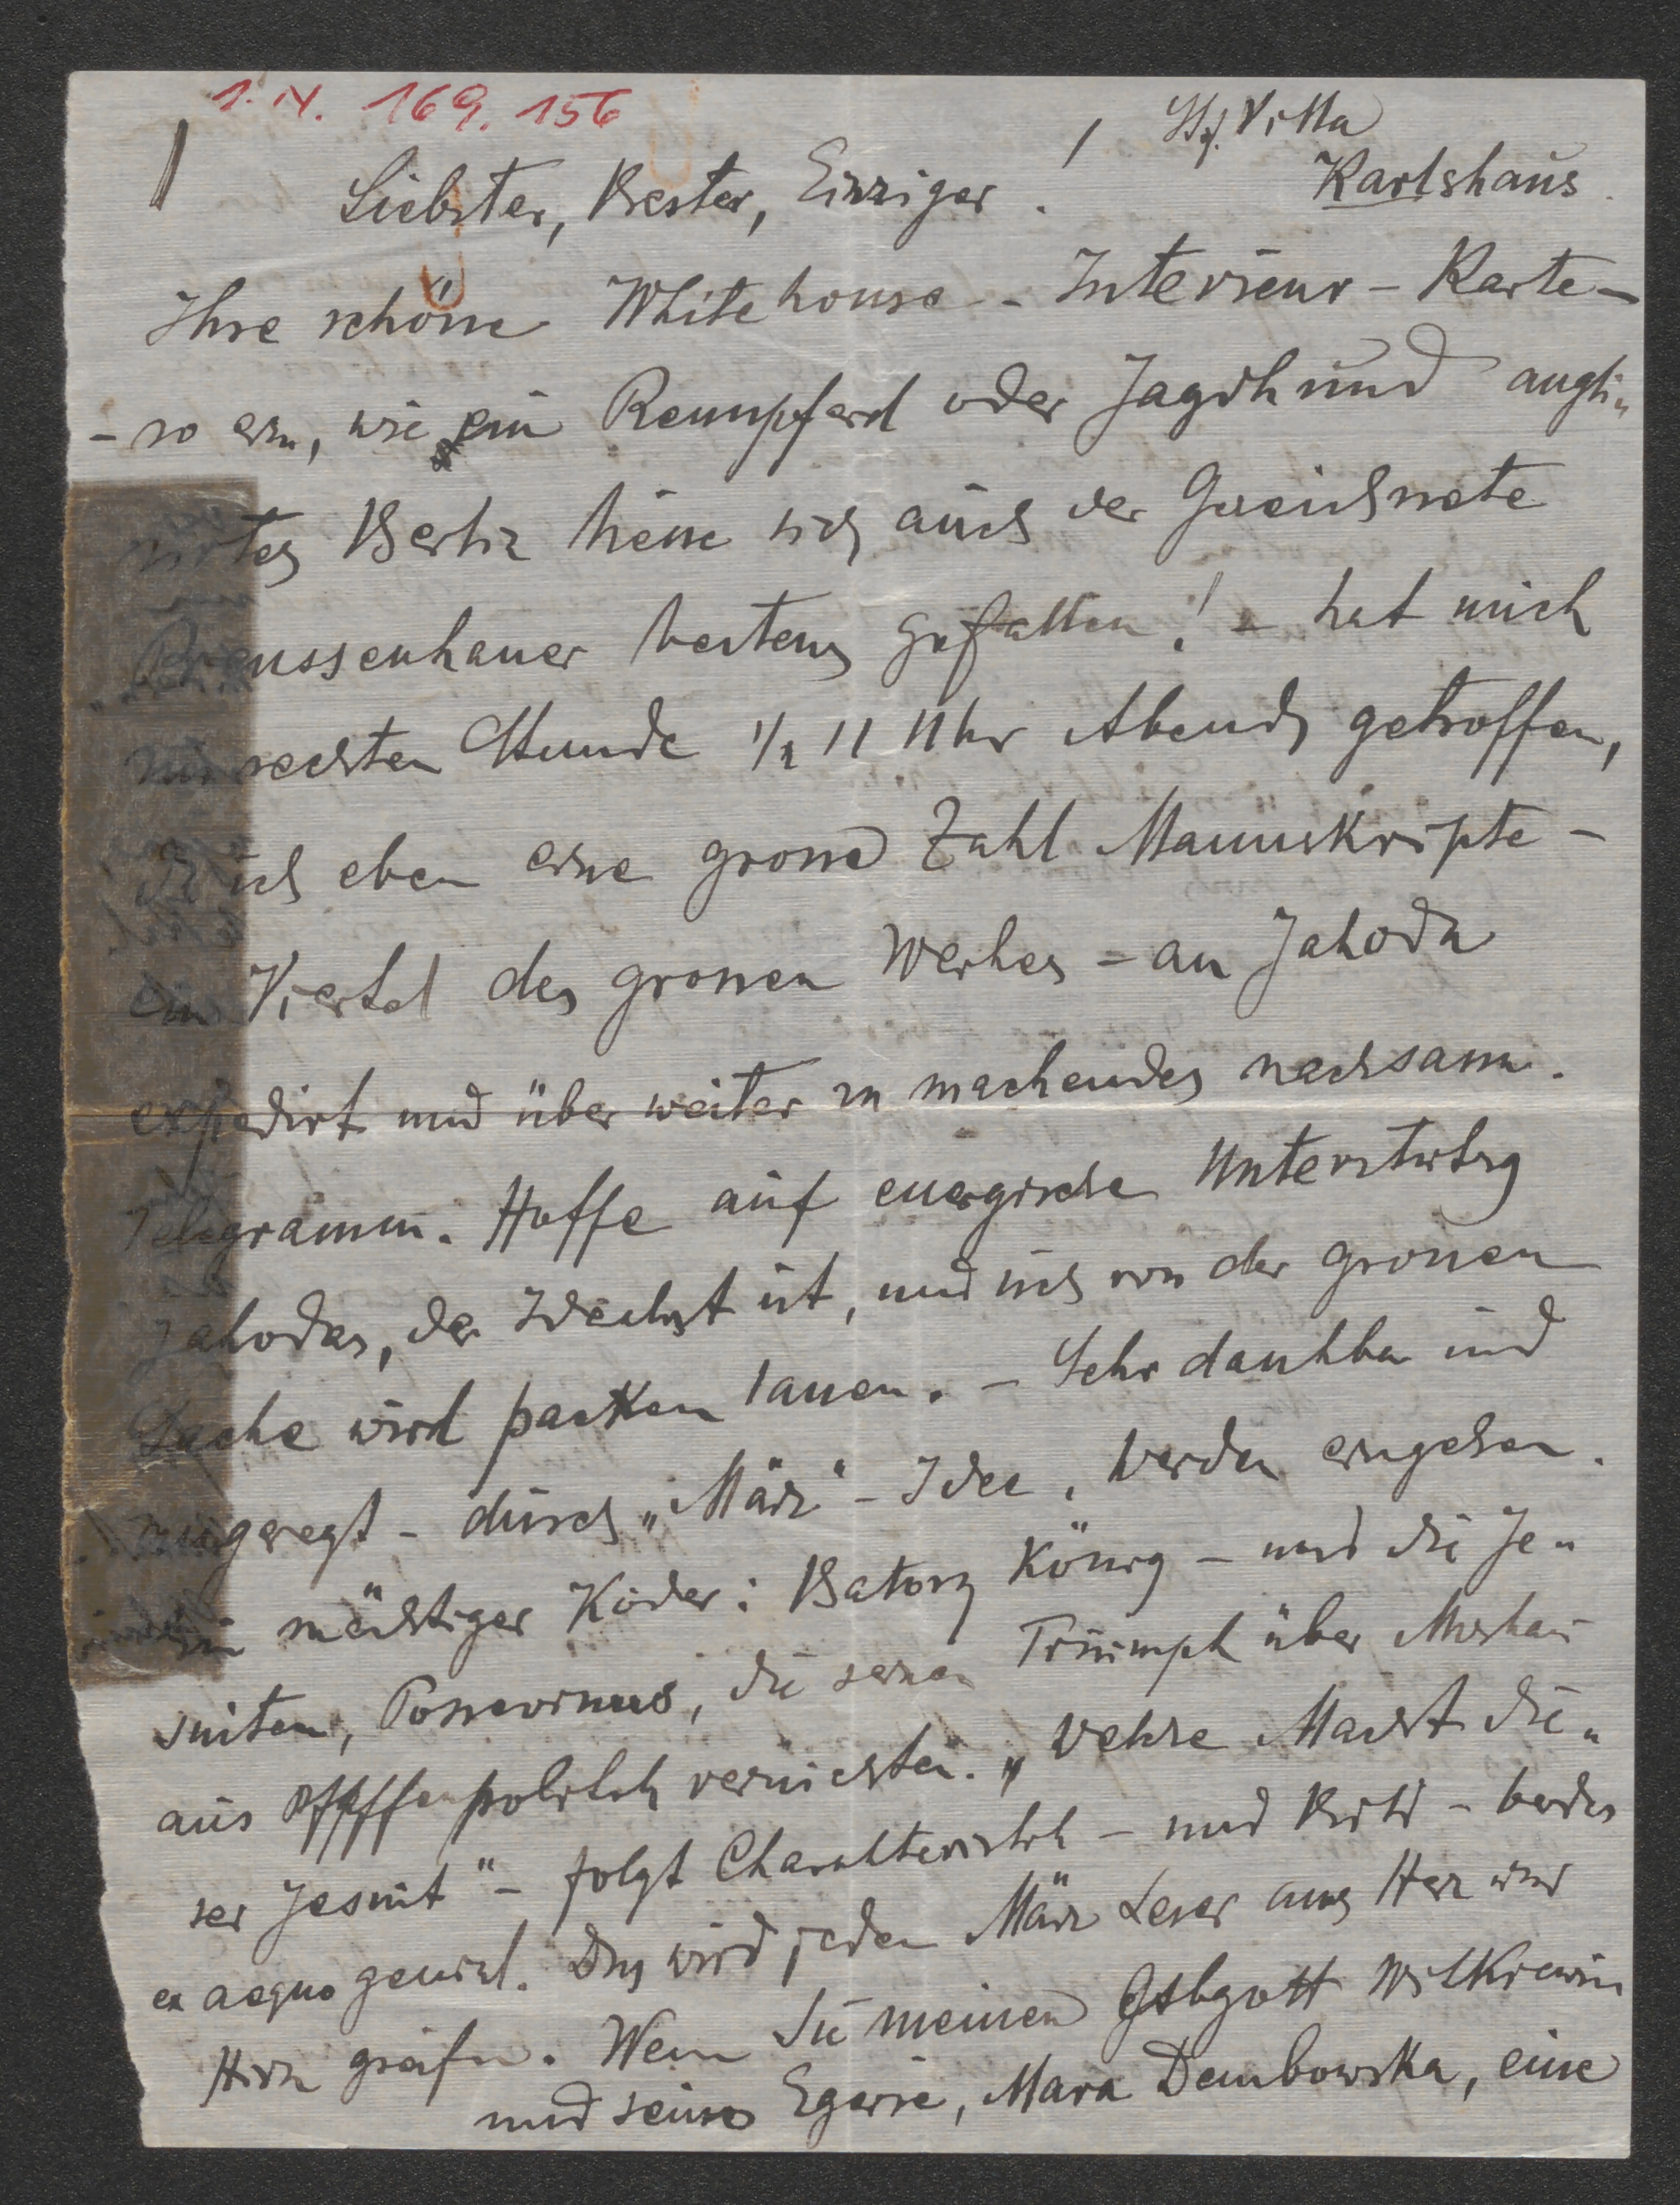 1. N. 169. 156
Villa
Karlshaus.
Liebster, Bester, Einziger!
Ihre schöne Whitehouse-Interieur-Karte-
- so ein, wie ein Rennpferd oder Jagdhund angli-
Berlin liesse sich auch der Gezeichnete
Preussenhauer bestens gefallen! - hat mich
zur rechten Stunde 1/2 11 Uhr Abends getroffen,
da ich eben eine grosse Zahl Manuskripte -
ein Viertel des grossen Werkes - an Jahoda
expedirt und über weiter zu machendes nachsann.
Telegramm. Hoffe auf energische Unterstützg
Jahodas, der Idealist ist, und sich von der grossen
Sache wird packen lassen. - Sehr dankbar und
angeregt - durch "März" - Idee, werden eingehen.
ein mächtiger Köder: Batory König - und die Je-
suiten, Possevinus, die seinen Triumph über Moskau
aus Pfaffenpolitik vernichten. "Welche Macht die-
ser Jesuit" - folgt Charakteristik - und Bild - beides
ex aequo genial. Das wird jeden März Leser ans Herz und
Hirn greifen. Wenn Sie meinen Abgott Witkiewicz
und seine Egerie, Mara Dembowska, eine